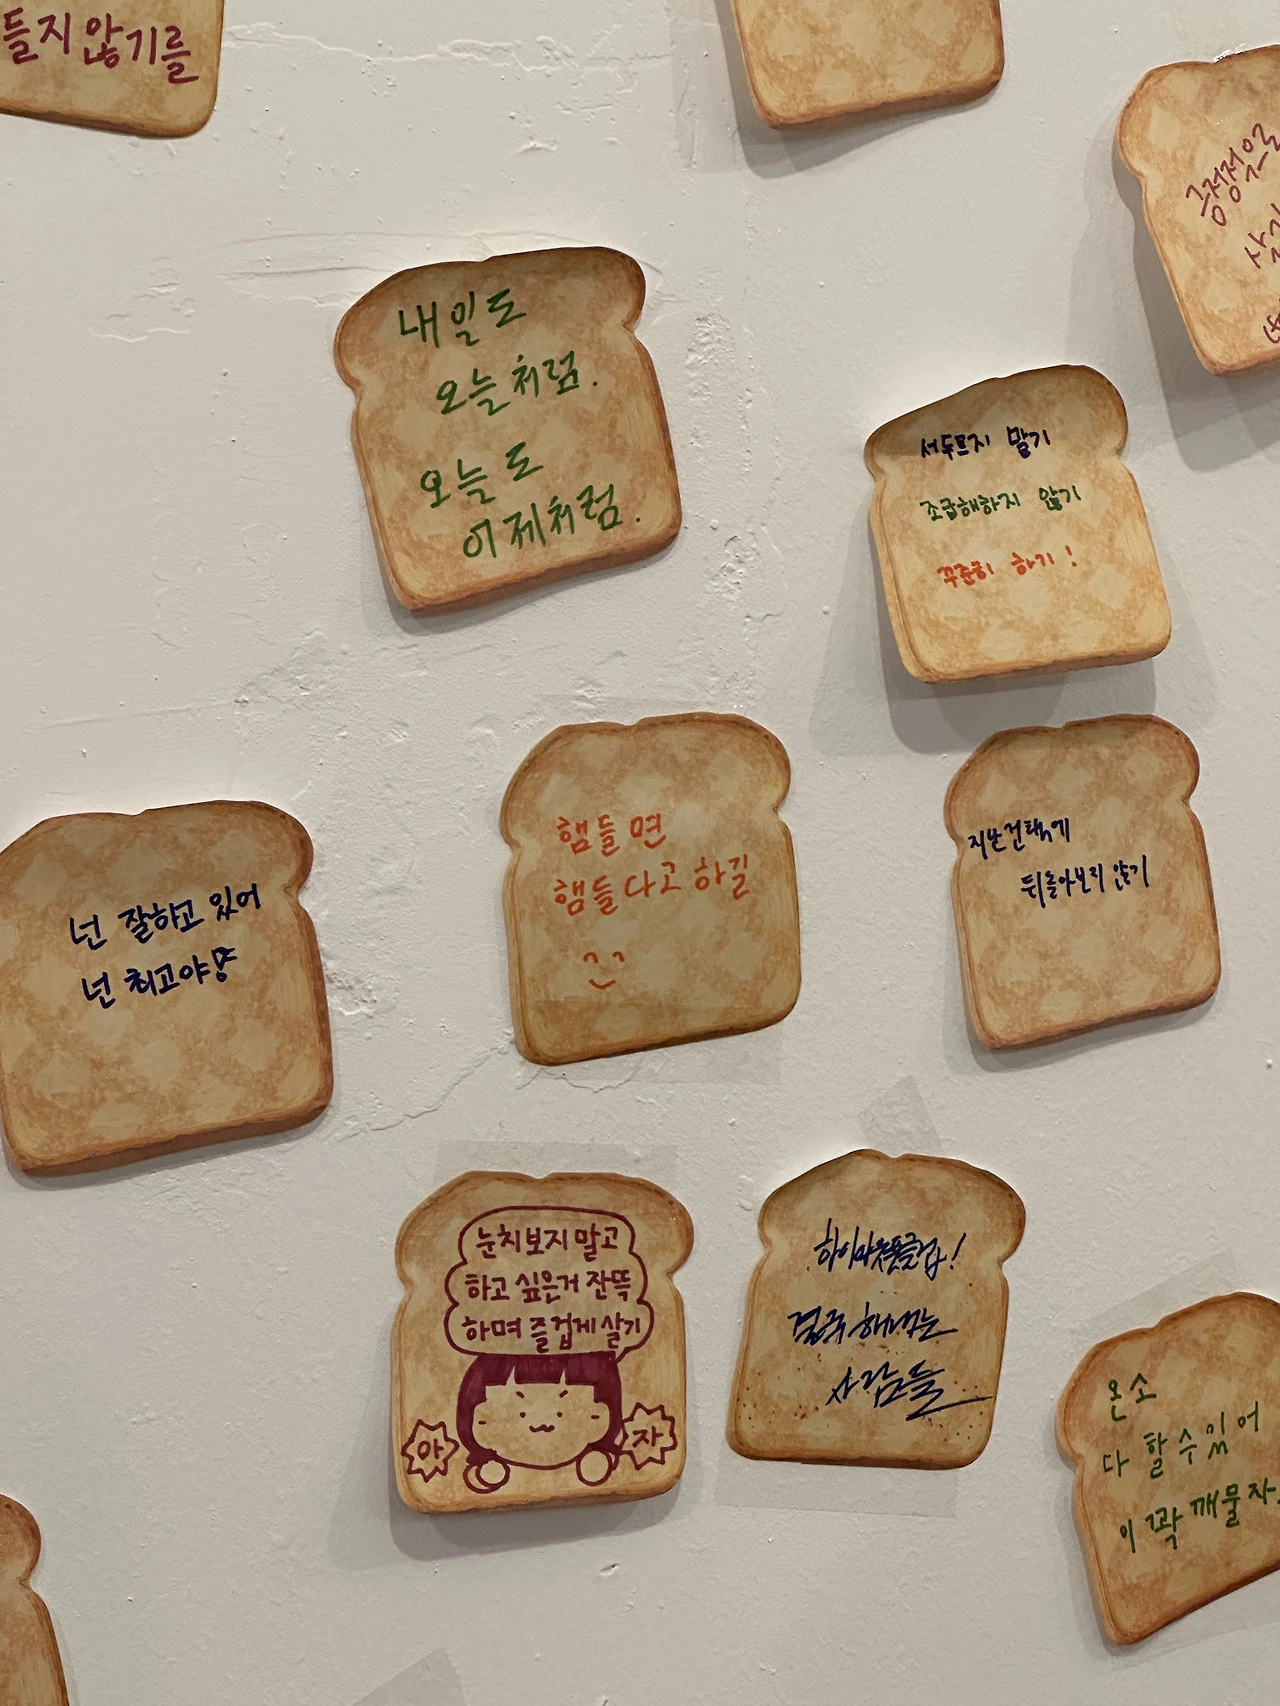 들지 않기를
긍정적으로
내일도
오늘처럼.
오늘도
어제처럼.
서두르지 말기
조급해하지 않기
꾸준히 하기!
넌 잘하고 있어
넌 최고야
햄들면
햄들다고 하길
지난 선택에
뒤돌아보지 않기
눈치보지 말고
하고 싶은거 잔뜩
하며 즐겁게 살기
아 자
하이아웃풋클럽!
결국 해내는
사람들
온소
다 할 수 있어
이 꽉 깨물자